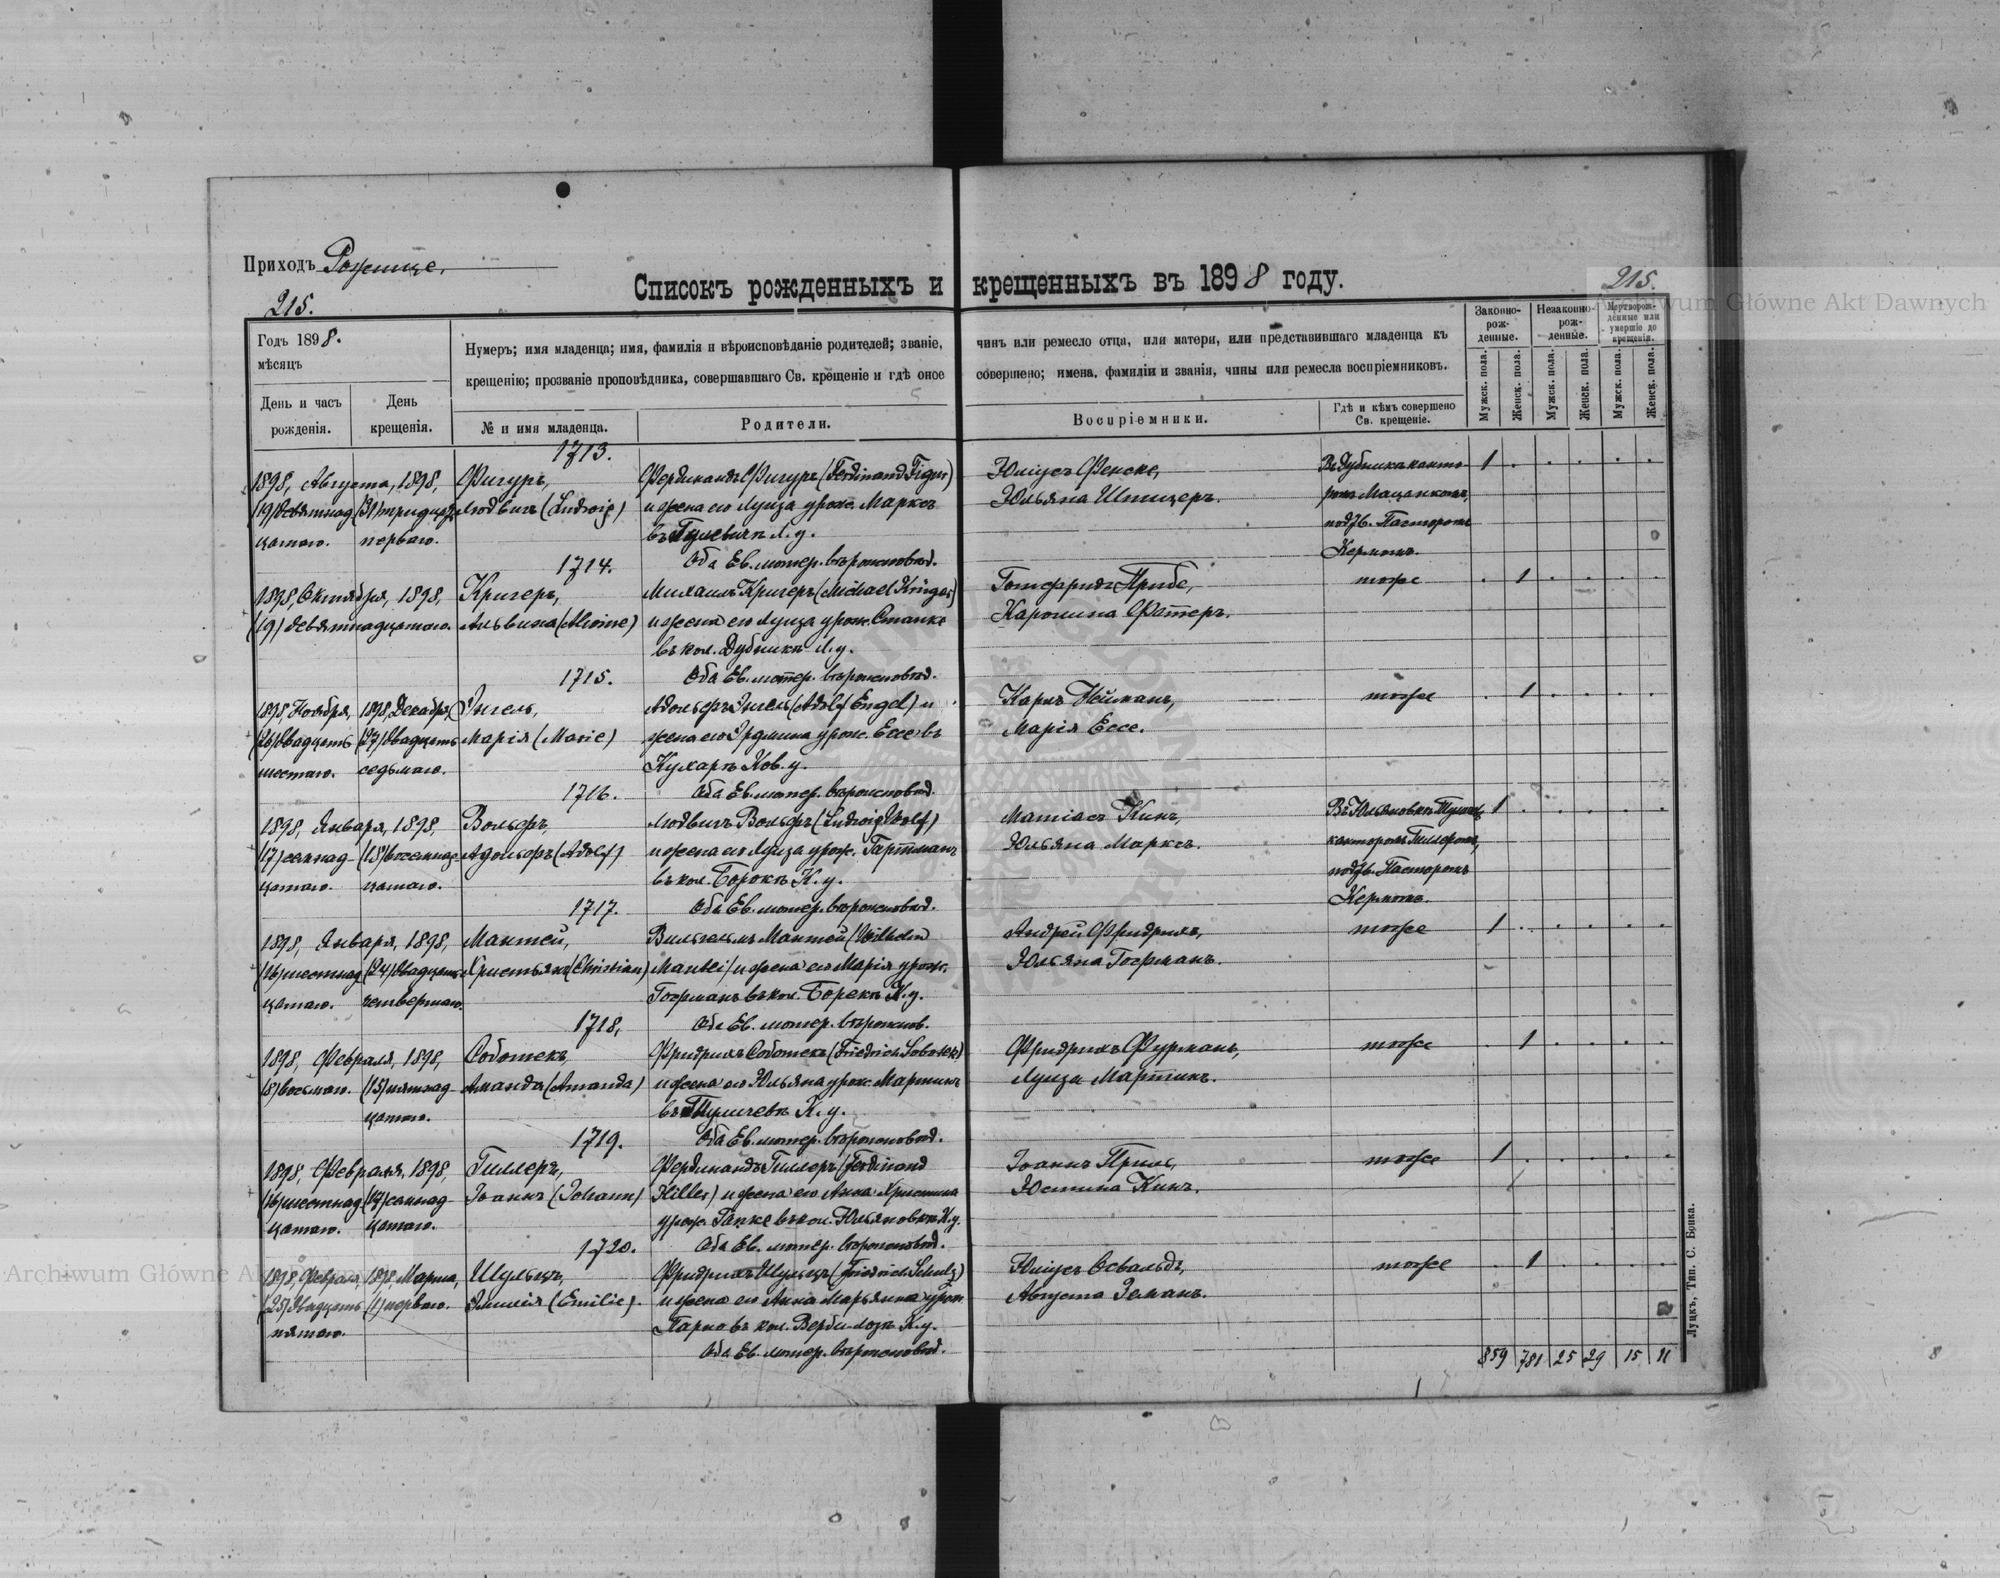 Приходъ Рожище.
Списокъ рожденныхъ и крещенныхъ въ 1898 году.
215.
215.
Archiwum Główne Akt Dawnych
Годъ 1898.
мѣсяцъ
День и часъ рожденія.
День крещенія.
Нумеръ; имя младенца; имя, фамилія и вѣроисповѣданіе родителей; званіе, чинъ или ремесло отца, или матери, или представившаго младенца къ
крещенію; прозваніе проповѣдника, совершавшаго Св. крещеніе и гдѣ оное совершено; имена, фамиліи и званія, чины или ремесла воспріемниковъ.
№ и имя младенца.
Родители.
Воспріемники.
Гдѣ и кѣмъ совершено Св. крещеніе.
Законно-рож-денные.
Незаконно-рож-денные.
Мертворож-денные или умершіе до крещенія.
Мужск. пола.
Женск. пола.
Мужск. пола.
Женск. пола.
Мужск. пола.
Женск. пола.
1713.
1898, Августа, 1898, Фигуръ, Фердинандъ Фигуръ (Ferdinand Figur) Юліусъ Фенске, Въ Дубникѣ канто- 1
(19) девятнад- (31) тридцать Людвигъ (Ludwig) и жена его Луиза урож. Марксъ Юльяна Шпицеръ. ромъ Мацанкомъ,
цатаго. перваго. въ Гулевичѣ Л. у. подтв. Пасторомъ
Оба Ев. лютер. вѣроисповѣд. Кермомъ.
1714.
1898, Октября, 1898, Кригеръ, Михаилъ Кригеръ (Michael Krüger) Готфридъ Прибе, тоже 1
(19) девятнадцатаго. Альвина (Alwine) и жена его Луиза урож. Станке Каролина Фатеръ.
въ кол. Дубникъ Л. у.
Оба Ев. лютер. вѣроисповѣд.
1715.
1898, Ноября, 1898, Декабря, Энгель, Адольфъ Энгель (Adolf Engel) и Карлъ Нейманъ, тоже 1
(26) двадцать (27) двадцать Марія (Marie) жена его Эрдмина урож. Ессе въ Марія Ессе.
шестаго. седьмаго. Кухаръ Ков. у.
Оба Ев. лютер. вѣроисповѣд.
1716.
1898, Января, 1898, Вольфъ, Людвигъ Вольфъ (Ludwig Wolf) Матіасъ Кинъ, Въ Юльяновкѣ 1
(17) семнад- Адольфъ (Adolf) и жена его Луиза урож. Гартманъ Юльяна Марксъ. канторомъ Гиллеромъ,
цатаго. цатаго. въ кол. Борокъ К. у. подтв. Пасторомъ
Оба Ев. лютер. вѣроисповѣд. Кермомъ.
1717.
1898, Января, 1898, Мантей, Вильгельмъ Мантей (Wilhelm Андрей Фридрихъ, тоже 1
(16) шестнад- (24) двадцать Христьянъ (Christian) Mantei) и жена его Марія урож. Юльяна Гофманъ.
цатаго. четвертаго. Гофманъ въ кол. Борекъ К. у.
Оба Ев. лютер. вѣроиспов.
1718.
1898, Февраля, 1898, Соботекъ, Фридрихъ Соботекъ (Friedrich Sobotek) Фридрихъ Фурманъ, тоже 1
(8) восьмаго. (15) пятнад- Аманда (Amanda) и жена его Юльяна урож. Мартинъ Луиза Мартинъ.
цатаго. въ Туличевѣ К. у.
Оба Ев. лютер. вѣроисповѣд.
1719.
1898, Февраля, 1898, Гиллеръ, Фердинандъ Гиллеръ (Ferdinand Іоаннъ Приль, тоже 1
(16) шестнад- (17) семнад- Іоаннъ (Johann) Hiller) и жена его Анна Христина Юстина Кинъ.
цатаго. цатаго. урож. Ганке въ кол. Юльяновкѣ К. у.
Оба Ев. лютер. вѣроисповѣд.
1720.
1898, Февраля, 1898, Марта, Шульцъ, Фридрихъ Шульцъ (Friedrich Schulz) Юліусъ Освальдъ, тоже 1
(25) двадцать (1) перваго. Эмилія (Emilie). и жена его Анна Марьянна урож. Августа Земанъ.
пятаго. въ кол. К. у.
Оба Ев. лютер. вѣроисповѣд.
859 781 25 29 15 11
Луцкъ, Тип. С. Бонка.
Archiwum Główne